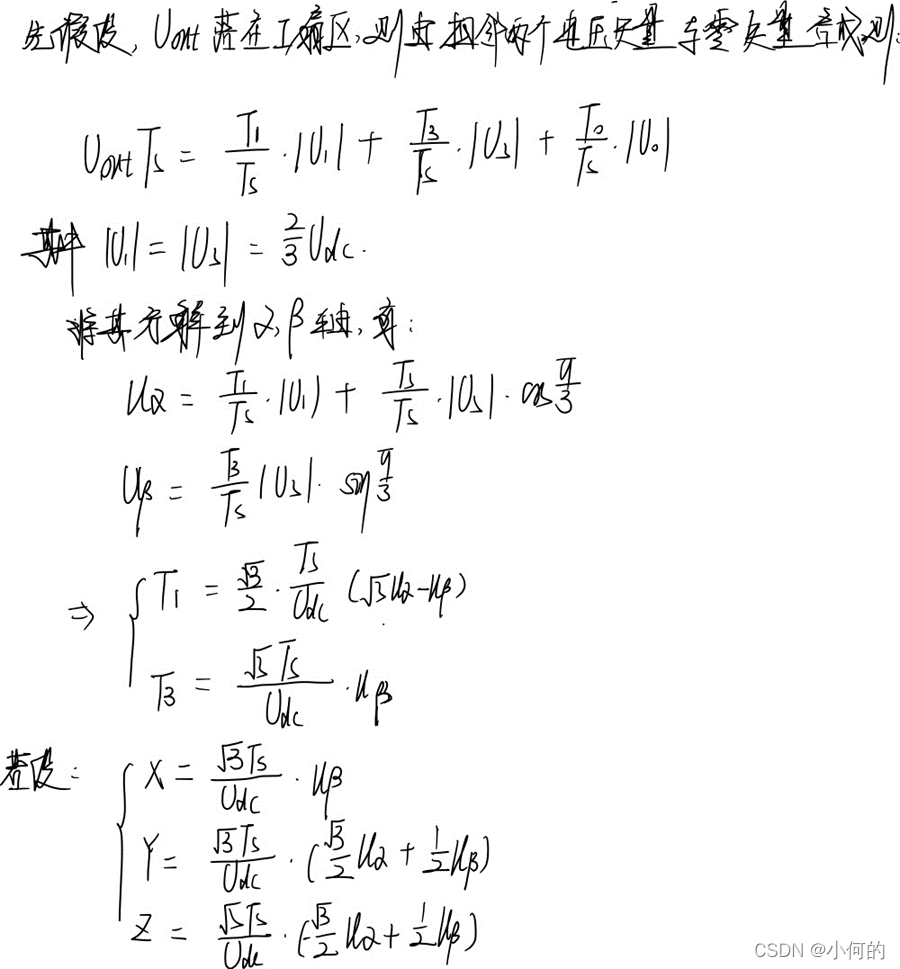 先假设, Uout 落在 I 扇区, 则由相邻两个电压矢量与零矢量合成, 则:
Uout Ts = T1/Ts · |U1| + T3/Ts · |U3| + T0/Ts · |U0|
其中 |U1| = |U3| = 2/3 Udc.
将其分解到 α, β 轴, 有:
Uα = T1/Ts · |U1| + T3/Ts · |U3| · cos π/3
Uβ = T3/Ts |U3| · sin π/3
⇒ { T1 = √3/2 · Ts/Udc (√3Uα - Uβ)
T3 = √3Ts/Udc · Uβ
若设: { X = √3Ts/Udc · Uβ
Y = √3Ts/Udc · (√3/2 Uα + 1/2 Uβ)
Z = √3Ts/Udc · (-√3/2 Uα + 1/2 Uβ)
CSDN @小何的